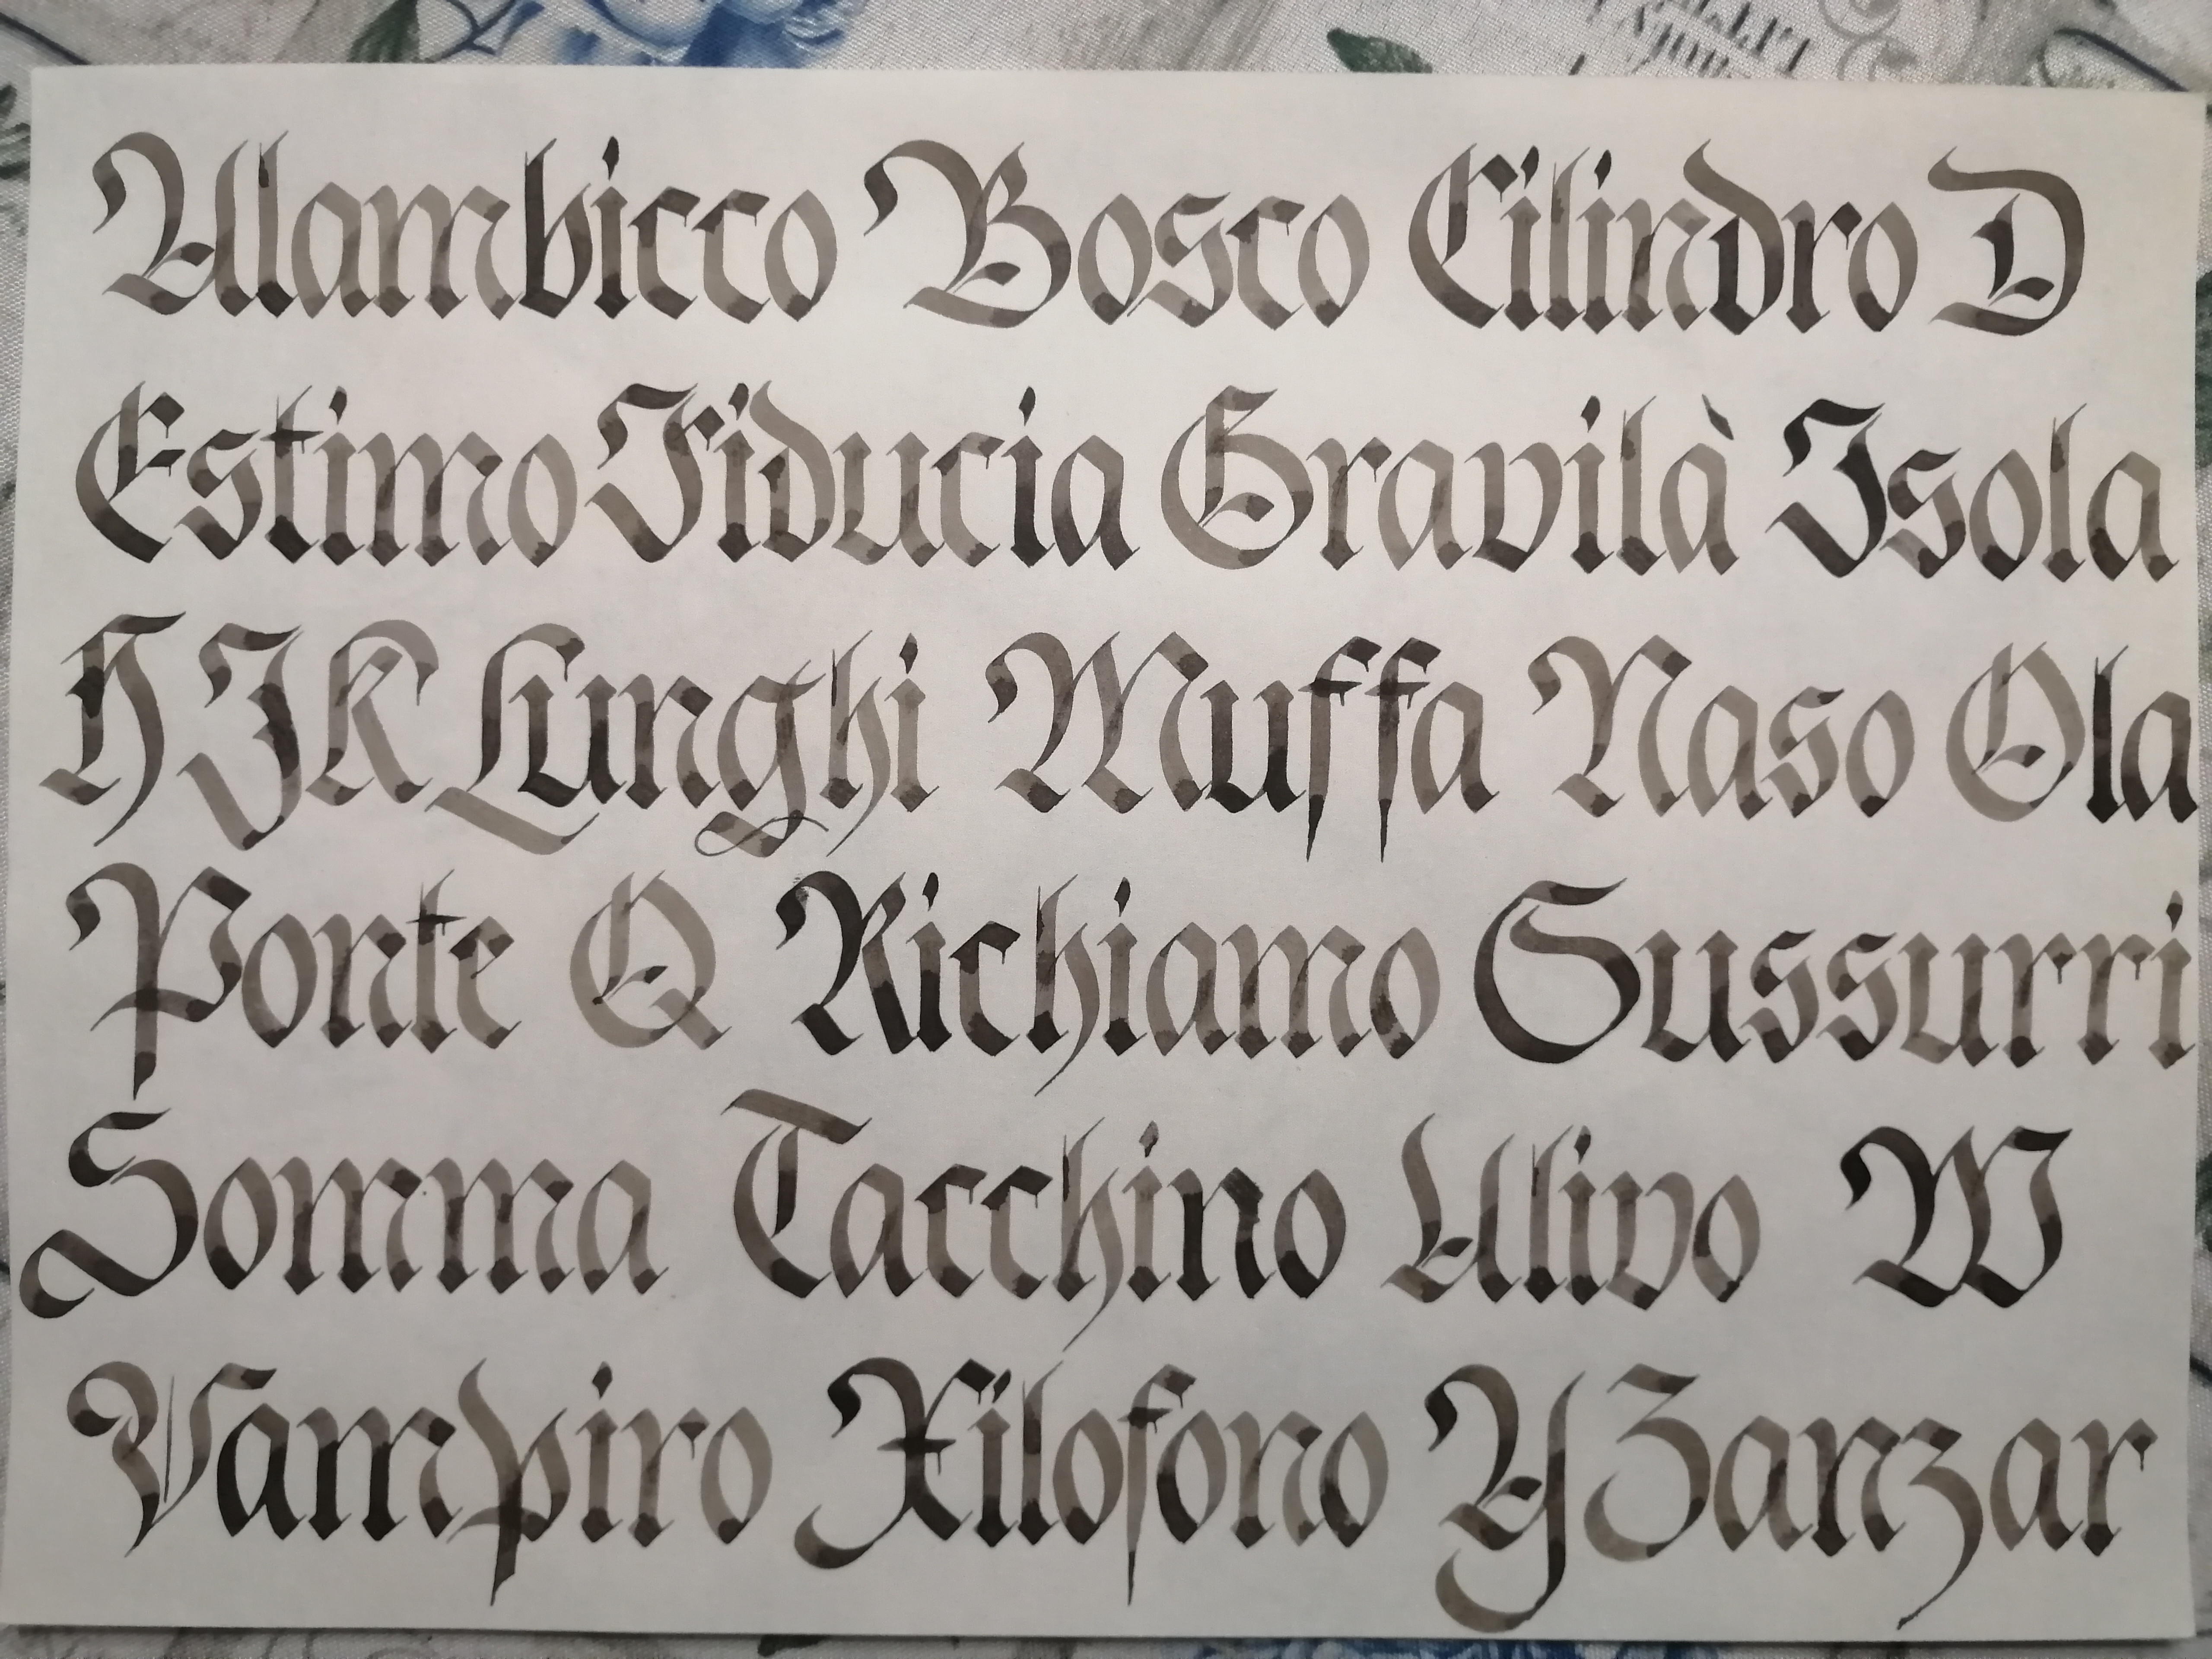 Alambicco Bosco Cilindro D
Estimo Fiducia Gravilà Isola
H J K Lunghi Muffa Naso Ola
Ponte Q Richiamo Sussurri
Somma Tacchino Ulivo W
Vampiro Xilofono Y Zanzar